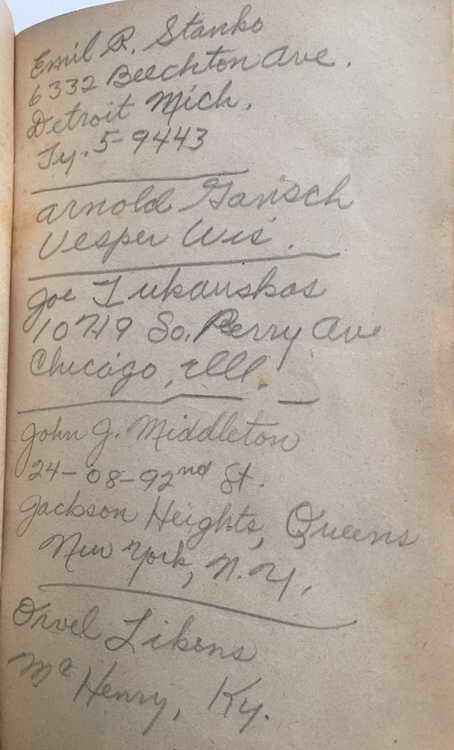 Emil R. Stanko
6332 Beechton Ave.
Detroit Mich.
Ty. 5-9443
Arnold Garisch
Vesper Wis.
Joe Lukauskas
10719 So. Perry Ave
Chicago, Ill.
John J. Middleton
24-08-92nd St.
Jackson Heights, Queens
New York, N.Y.
Orvel Likens
Mc Henry, Ky.